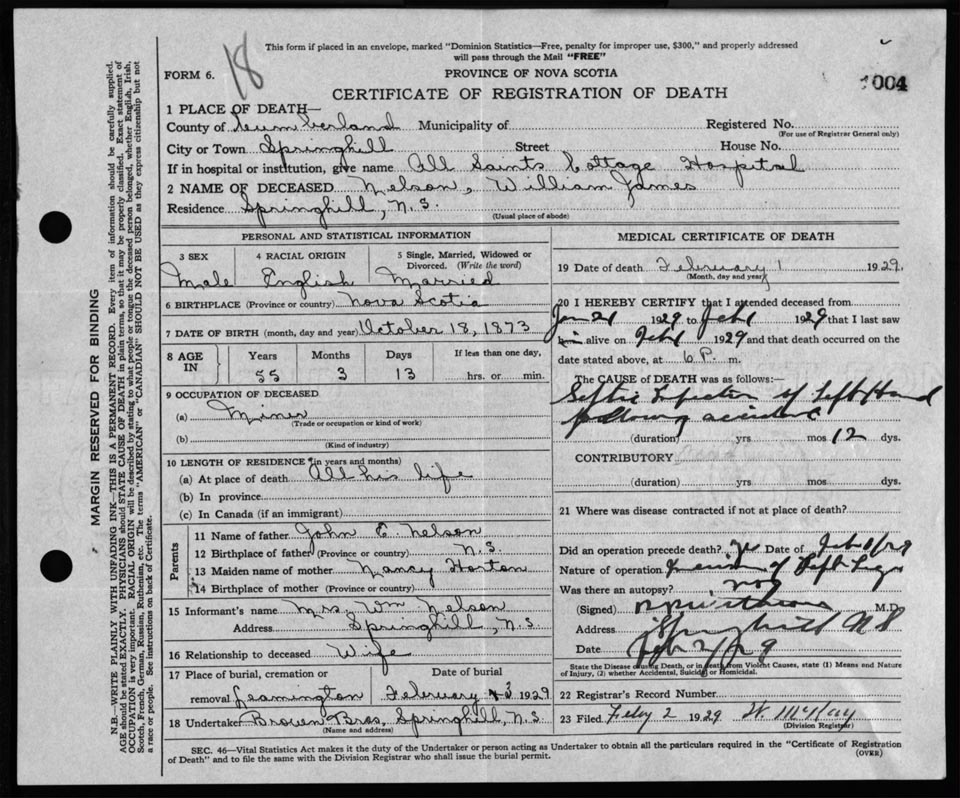 18
This form if placed in an envelope, marked "Dominion Statistics—Free, penalty for improper use, $300," and properly addressed
will pass through the Mail "FREE"
FORM 6.
PROVINCE OF NOVA SCOTIA
004
CERTIFICATE OF REGISTRATION OF DEATH
1 PLACE OF DEATH—
County of Cumberland Municipality of Registered No.
(For use of Registrar General only)
City or Town Springhill Street House No.
If in hospital or institution, give name All Saints Cottage Hospital
2 NAME OF DECEASED Nelson, William James
Residence Springhill, N.S.
(Usual place of abode)
PERSONAL AND STATISTICAL INFORMATION
3 SEX 4 RACIAL ORIGIN 5 Single, Married, Widowed or
Divorced. (Write the word)
Male English Married
6 BIRTHPLACE (Province or country) Nova Scotia
7 DATE OF BIRTH (month, day and year) October 18, 1873
8 AGE IN Years Months Days If less than one day,
55 3 13 hrs. or min.
9 OCCUPATION OF DECEASED
(a) Miner
(Trade or occupation or kind of work)
(b)
(Kind of industry)
10 LENGTH OF RESIDENCE (in years and months)
(a) At place of death All his life
(b) In province
(c) In Canada (if an immigrant)
Parents
11 Name of father John E. Nelson
12 Birthplace of father (Province or country) N.S.
13 Maiden name of mother Nancy Horton
14 Birthplace of mother (Province or country)
15 Informant's name Mrs. Wm Nelson
Address Springhill, N.S.
16 Relationship to deceased Wife
17 Place of burial, cremation or Date of burial
removal Leamington February 3 1929
18 Undertaker Brown Bros, Springhill, N.S.
(Name and address)
MEDICAL CERTIFICATE OF DEATH
19 Date of death February 1 1929.
(Month, day and year)
20 I HEREBY CERTIFY that I attended deceased from
Jan 21 1929 to Feb 1 1929 that I last saw
him alive on Feb 1 1929 and that death occurred on the
date stated above, at 6 P. m.
The CAUSE of DEATH was as follows:—
Septic Infection of Left Hand
following accident
(duration) yrs mos 12 dys.
CONTRIBUTORY
(duration) yrs mos dys.
21 Where was disease contracted if not at place of death?
Did an operation precede death? Yes Date of
Nature of operation of Left
Was there an autopsy? no
(Signed) M.D.
Address Springhill NS
Date Feb 2/29
State the Disease causing Death, or in death from Violent Causes, state (1) Means and Nature
of Injury, (2) whether Accidental, Suicidal or Homicidal.
22 Registrar's Record Number
23 Filed Feby 2 1929
(Division Registrar)
SEC. 46—Vital Statistics Act makes it the duty of the Undertaker or person acting as Undertaker to obtain all the particulars required in the "Certificate of Registration
of Death" and to file the same with the Division Registrar who shall issue the burial permit.
(OVER)
MARGIN RESERVED FOR BINDING
N.B.—WRITE PLAINLY WITH UNFADING INK—THIS IS A PERMANENT RECORD. Every item of information should be carefully supplied.
AGE should be stated EXACTLY. PHYSICIANS should STATE CAUSE OF DEATH in plain terms, so that it may be properly classified. Exact statement of
OCCUPATION is very important. RACIAL ORIGIN will be described by stating to what people or tongue the deceased person belonged, whether English, Irish,
Scotch, French, German, Russian, Ruthenian, etc. The terms "AMERICAN" or "CANADIAN" SHOULD NOT BE USED as they express citizenship but not
a race or people. See instructions on back of Certificate.